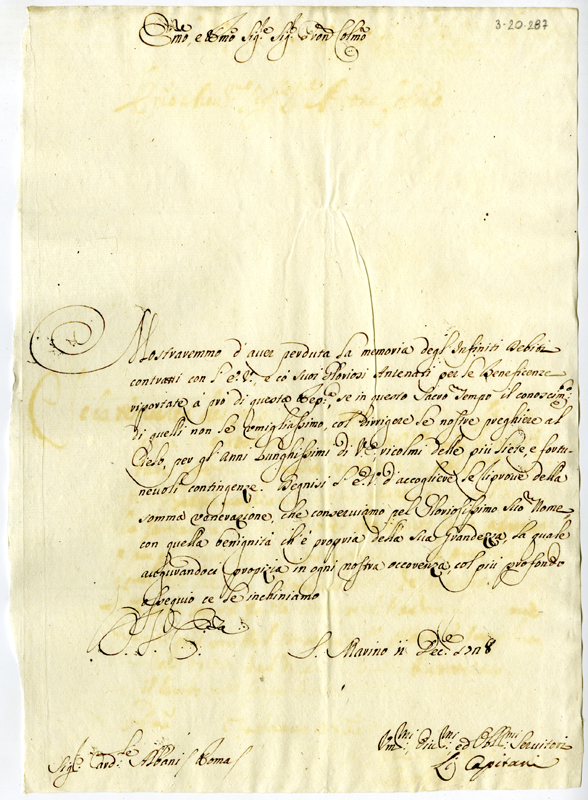 3-20-287
Em̃o, e Rm̃o Sig.e Sig.e Pron Colm̃o
Mostraremmo d'aver perduta la memoria degl'Infiniti Debiti
contratti con l'E.V., e co' suoi Gloriosi Antenati per le Beneficenze
riportate a prò di questa Rep.ca, se in questo Sacro Tempo il conoscim.to
di quelli non le
col dirrigere le nostre preghiere al
Cielo, per gl'Anni Lunghissimi di V.E. ricolmi delle più liete, e fortu-
nevoli contingenze. Degnisi l'E.V. d'accogliere le riprove della
somma venerazione, che conserviamo pel Gloriosissimo Suo Nome
con quella benignità ch'è propria della Sua Grandezza, la quale
augurandoci propizia in ogni nostra occorenza, col più profondo
ossequio ce le inchiniamo
S. Marino 11 Dec.
Um.mi Div.mi ed Obb.mi Servitori
Sig.e Card.le Albani / Roma /
Li Capitani